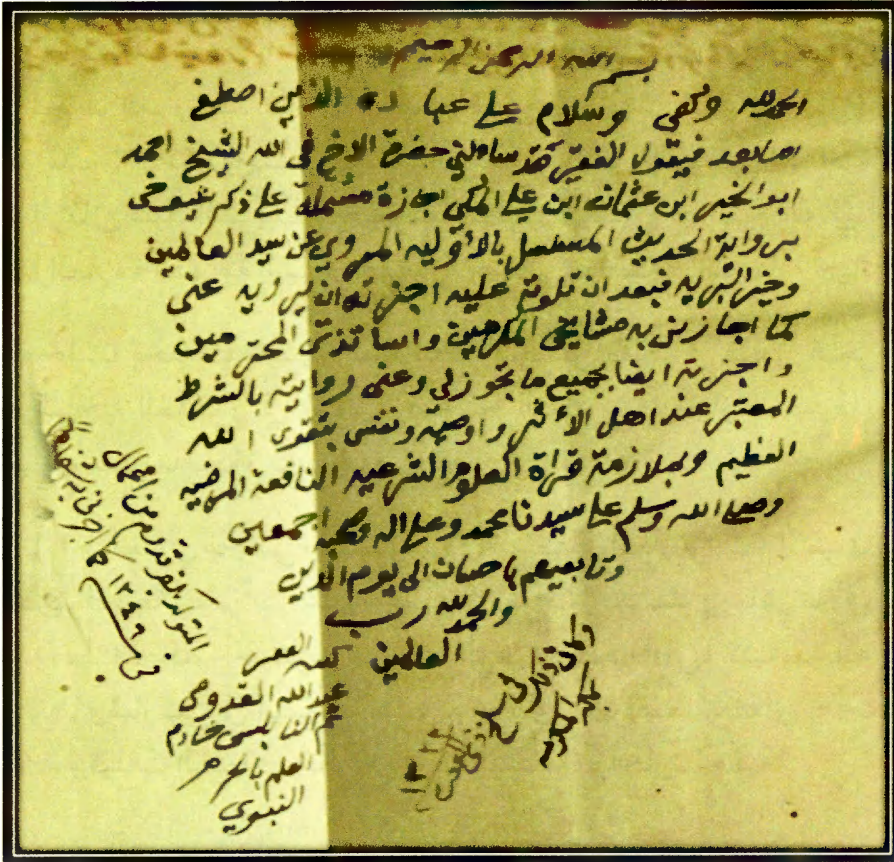 بسم الله الرحمن الرحيم
الحمد لله وكفى وسلام على عباده الذين اصطفى
اما بعد فيقول الفقير قد سالني حضرة الاخ في الله الشيخ احمد
ابو الخير ابن عثمان ابن علي المكي اجازة مشتملة على ذكر شيوخي
برواية الحديث المسلسل بالاوليه المروي عن سيد العالمين
وخير البريه فبعد ان تلوته عليه اجزته ان يرويه عني
كما اجازني به مشايخي المكرمين واساتذتي المحترمين
واجزته ايضا بجميع ما تجوز لي وعني روايته بالشرط
المعتبر عند اهل الأثر واوصيه ونفسي بتقوى الله
العظيم وبملازمة قراة العلوم الشرعيه النافعة المرضيه
وصلى الله وسلم على سيدنا محمد وعلى اله وصحبه اجمعين
وتابعيهم باحسان الى يوم الدين
والحمد لله رب
العالمين كتبه الفقير
عبدالله القدومي
النابلسي خادم
العلم بالحرم
النبوي
وكان ذلك في
بمكة المكرمة
في ١٣٤٦